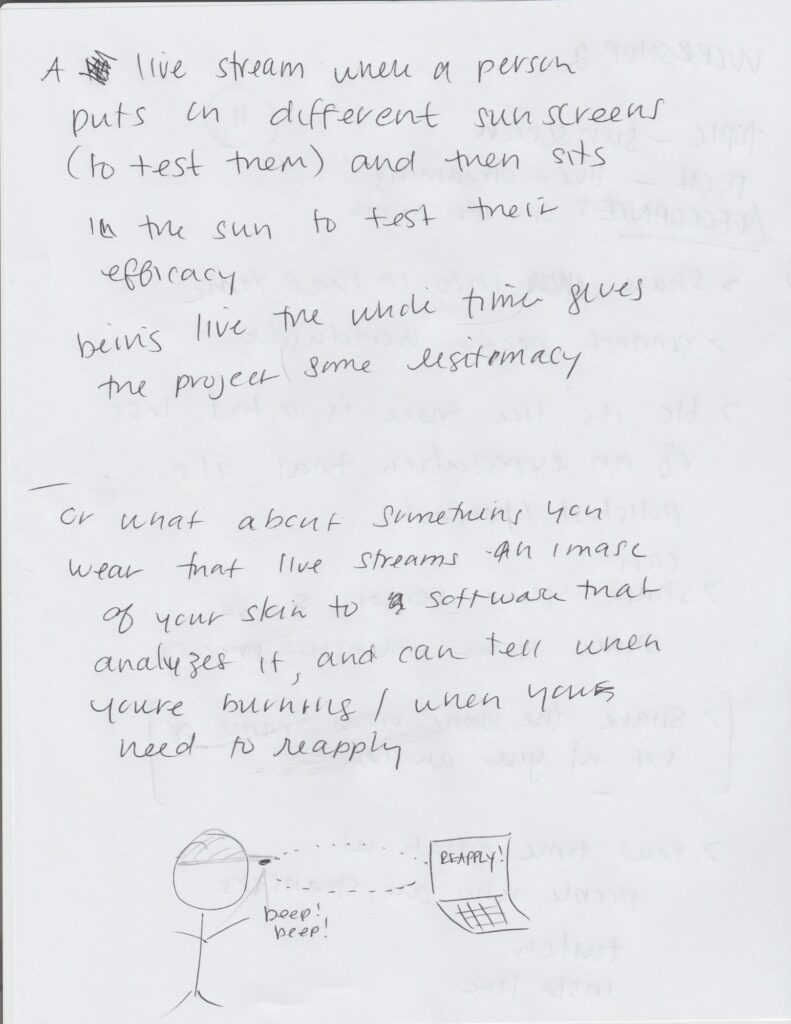 A live stream when a person
puts on different sunscreens
(to test them) and then sits
in the sun to test their
efficacy
being live the whole time gives
the project some legitimacy
or what about something you
wear that live streams an image
of your skin to software that
analyzes it, and can tell when
youre burning / when you
need to reapply
REAPPLY!
beep!
beep!